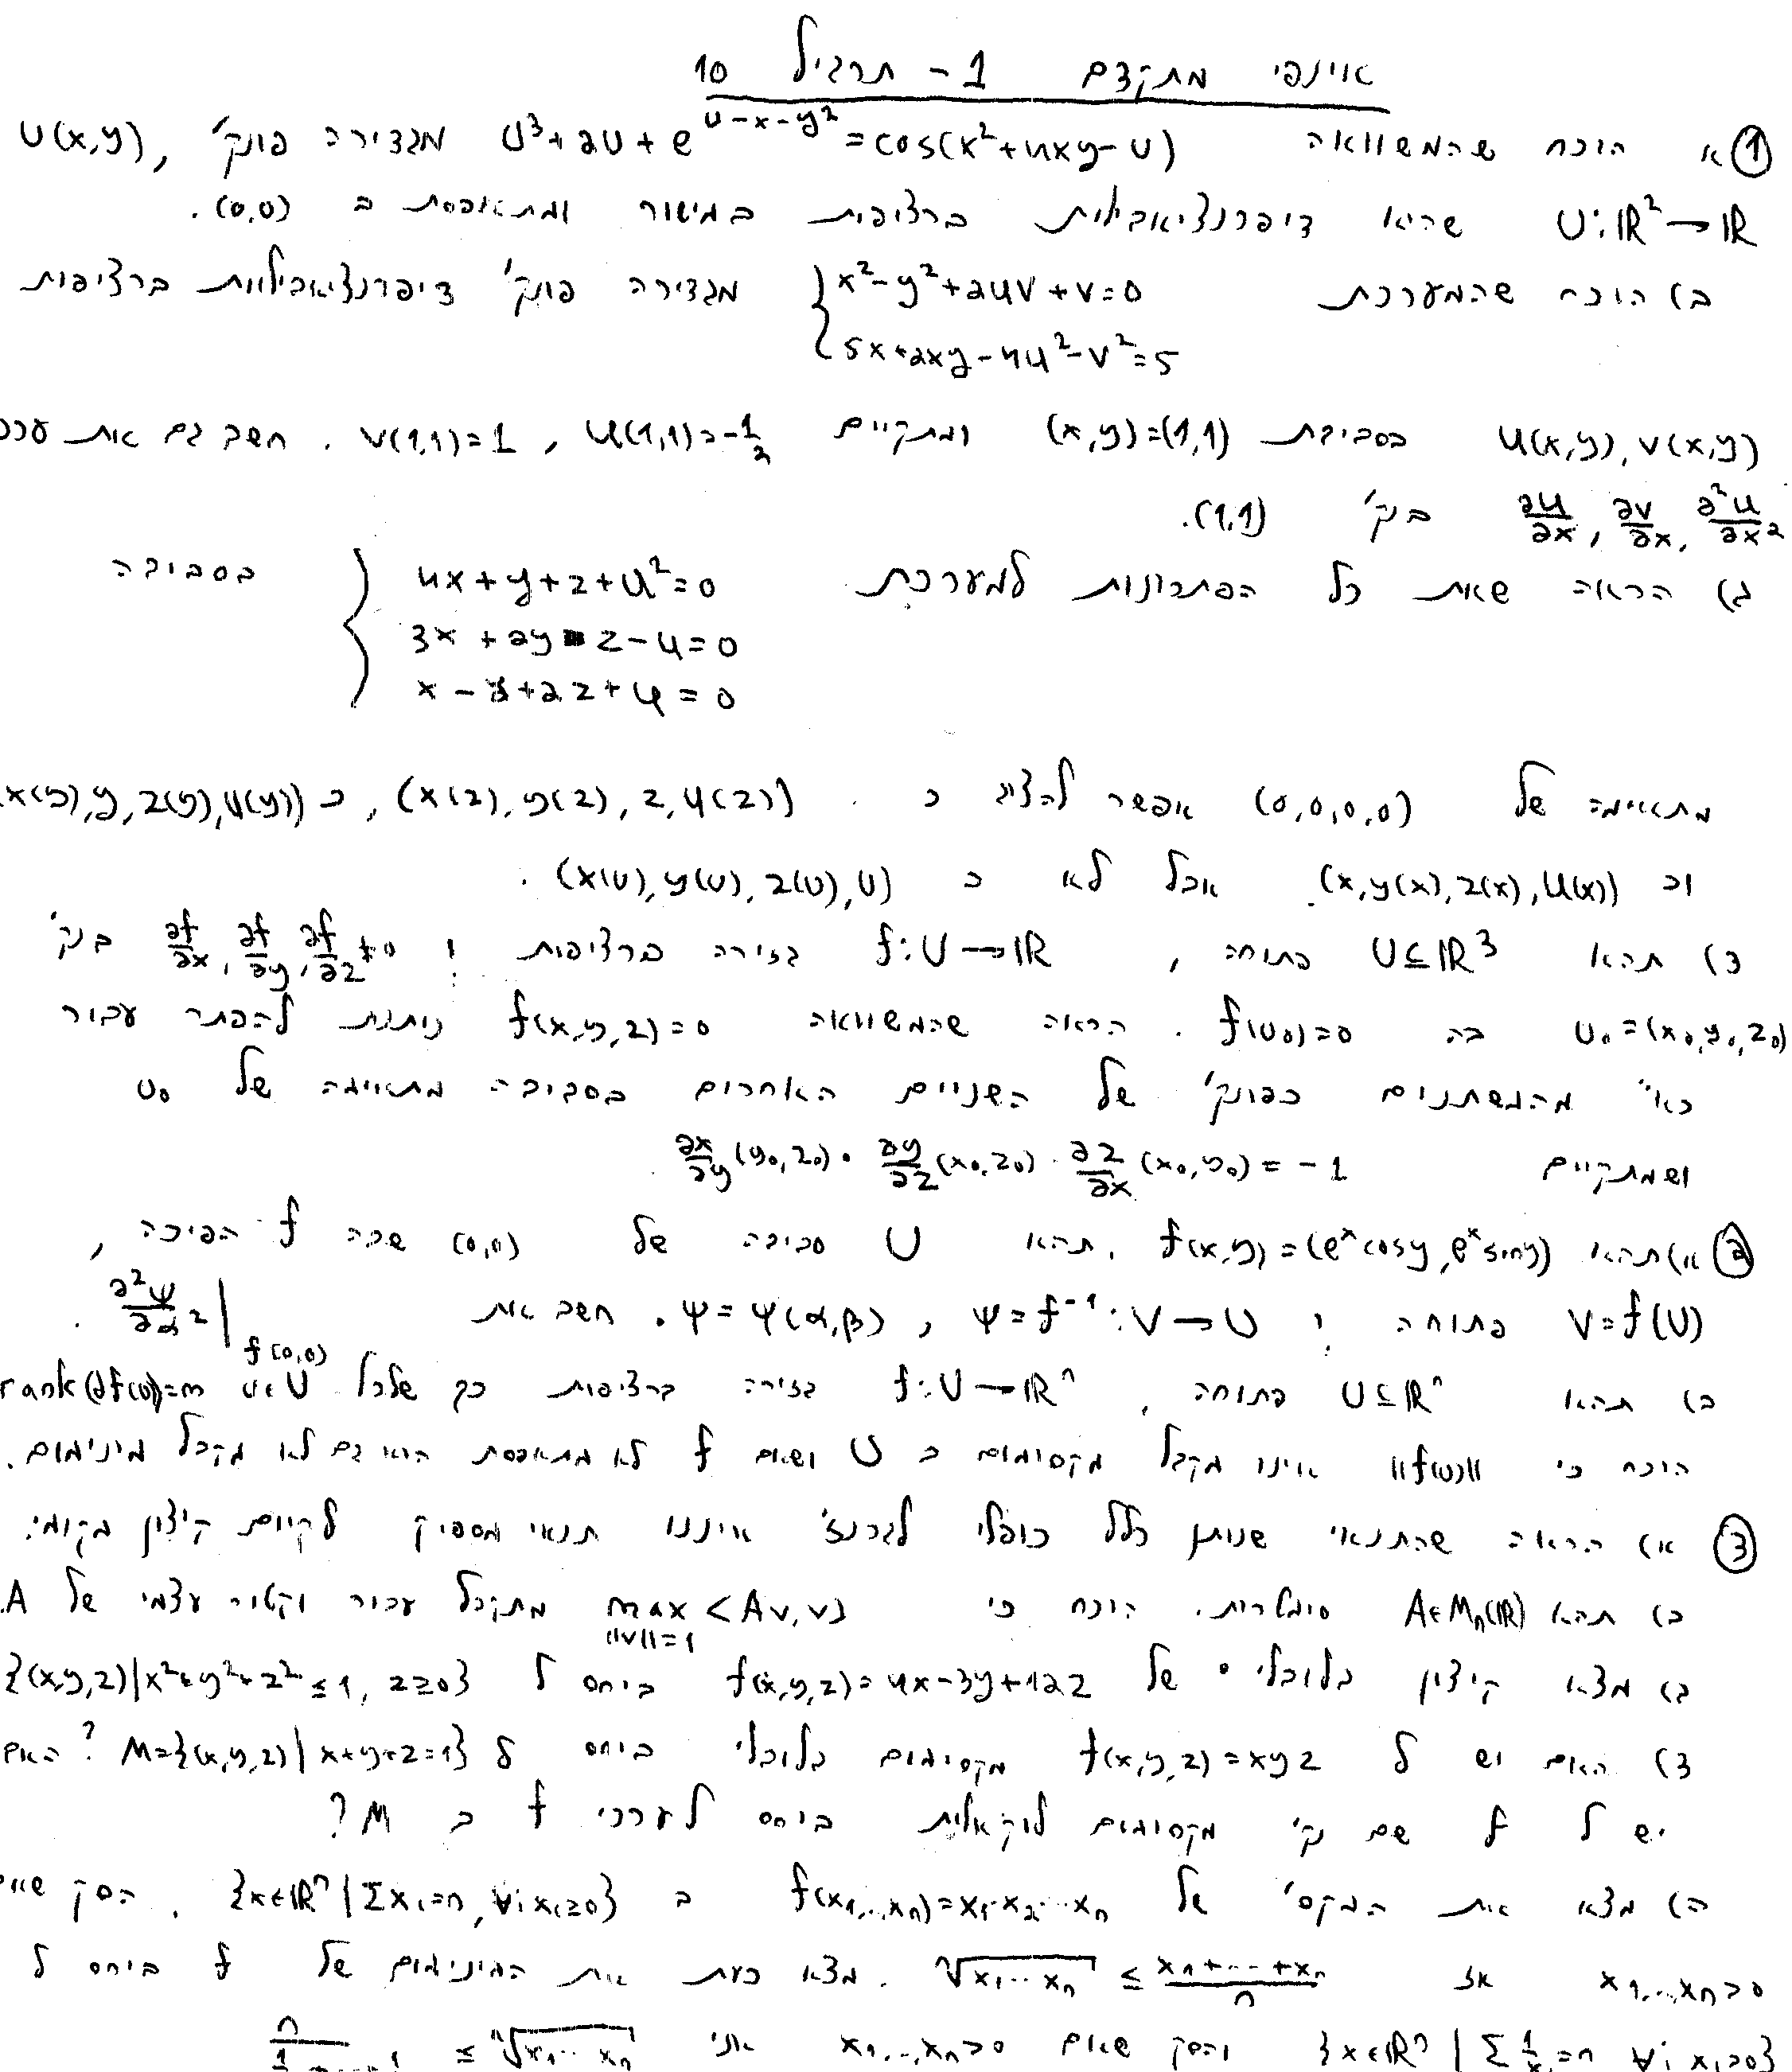 אינפי מתקדם 1 - תרגיל 10
① א הוכח שהמשוואה U³+2U+e^(U-x-y²)=cos(x²+4xy-U) מגדירה פונק' U(x,y),
U:ℝ²→ℝ שהיא דיפרנציאבילית ברציפות במישור ומתאפסת ב (0,0).
ב) הוכח שהמערכת { x²-y²+2uv+v=0 מגדירה פונק' דיפרנציאביליות ברציפות
5x+2xy-4u²-v²=5
u(x,y), v(x,y) בסביבת (x,y)=(1,1) ומתקיים u(1,1)=-1/2, v(1,1)=1. חשב גם את ערכ
∂u/∂x, ∂v/∂x, ∂²u/∂x² בנק' (1,1).
ג) הראה שאת כל הפתרונות למערכת { 4x+y+z+u²=0 בסביבה
3x+2y z-u=0
x-y+2z+u=0
מתאימה של (0,0,0,0) אפשר להציג כ (x(z),y(z),z,u(z)), כ (x(y),y,z(y),u(y))
וכ (x,y(x),z(x),u(x)) אבל לא כ (x(u),y(u),z(u),u).
ד) תהא U⊆ℝ³ פתוחה, f:U→ℝ גזירה ברציפות ו ∂f/∂x, ∂f/∂y, ∂f/∂z≠0 בנק'
u₀=(x₀,y₀,z₀) בה f(u₀)=0. הראה שהמשוואה f(x,y,z)=0 ניתנת להפתר עבור
כא" מהמשתנים כפונק' של השניים האחרים בסביבה מתאימה של u₀
ושמתקיים ∂x/∂y(y₀,z₀)·∂y/∂z(x₀,z₀)·∂z/∂x(x₀,y₀)=-1
② א) תהא f(x,y)=(eˣcosy,eˣsiny). תהא U סביבה של (0,0) שבה f הפיכה,
V=f(U) פתוחה ו ψ=f⁻¹:V→U, ψ=ψ(α,β). חשב את ∂²ψ/∂α²|f(0,0).
ב) תהא U⊆ℝⁿ פתוחה, f:U→ℝⁿ גזירה ברציפות כך שלכל u∈U rank(∂f(u))=n
הוכח כי ||f(u)|| אינו מקבל מקסימום ב U ושאם f לא מתאפסת הוא גם לא מקבל מינימום.
③ א) הראה שהתנאי שנותן כלל כופלי לגרנז' איננו תנאי מספיק לקיום קיצון מקומי.
ב) תהא A∈Mₙ(ℝ) סימטרית. הוכח כי max||v||=1 <Av,v> מתקבל עבור וקטור עצמי של A.
ג) מצא קיצון גלובלי של f(x,y,z)=4x-3y+12z ביחס ל {(x,y,z)|x²+y²+z²≤1, z≥0}
ד) האם יש ל f(x,y,z)=xyz מקסימום גלובלי ביחס ל M={(x,y,z)|x+y+z=1}? האם
יש ל f שם נק' מקסימום לוקאלית ביחס לערכי f ב M?
ה) מצא את המקס' של f(x₁,..,xₙ)=x₁·x₂···xₙ ב {x∈ℝⁿ|Σxᵢ=n, ∀i xᵢ≥0}. הסק שאם
x₁,..,xₙ>0 אז ⁿ√x₁···xₙ ≤ (x₁+···+xₙ)/n. מצא כעת את המינימום של f ביחס ל
{x∈ℝⁿ|Σ1/xᵢ=n ∀i xᵢ>0} והסק שאם x₁,..,xₙ>0 אזי ≤ ⁿ√x₁···xₙ